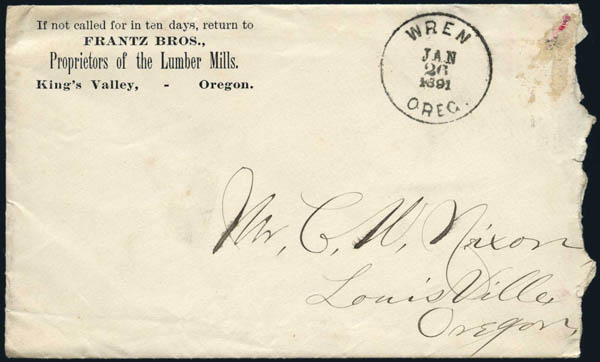 If not called for in ten days, return to
FRANTZ BROS.,
Proprietors of the Lumber Mills.
King's Valley, - Oregon.
WREN
JAN
26
1891
OREG.
Mr, C, W, Nixon
LouisVille,
Oregon